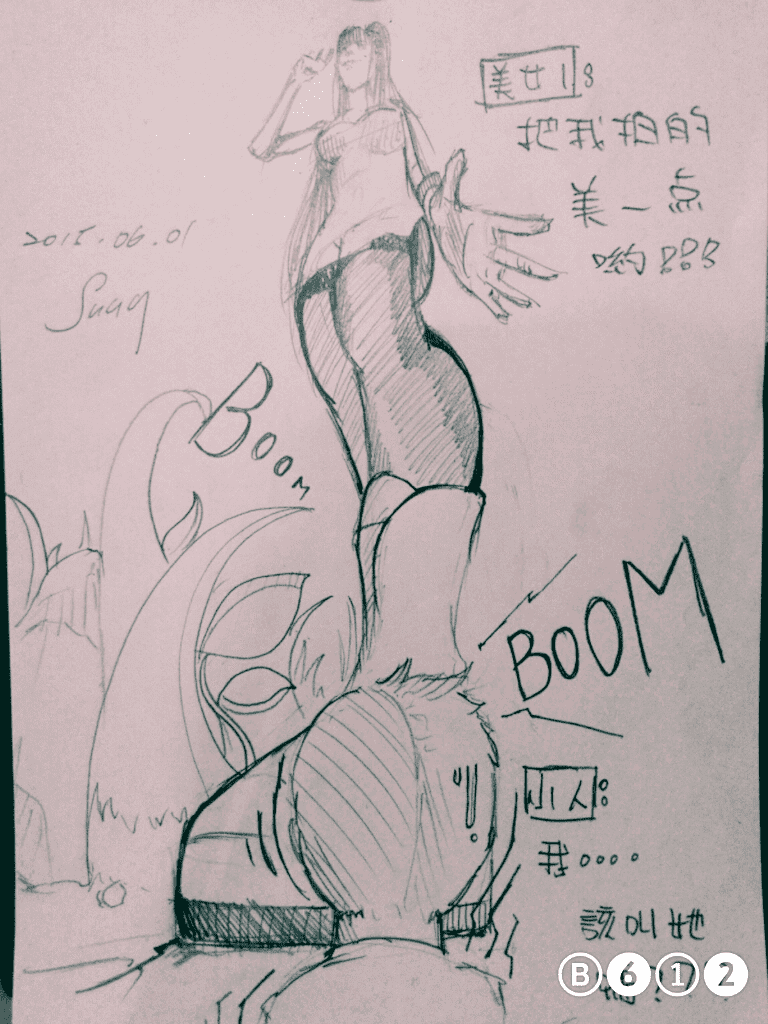 美女18
把我拍的
美一点
哟???
2015.06.01
BOOM
BOOM
小人:
我....
該叫她
B612